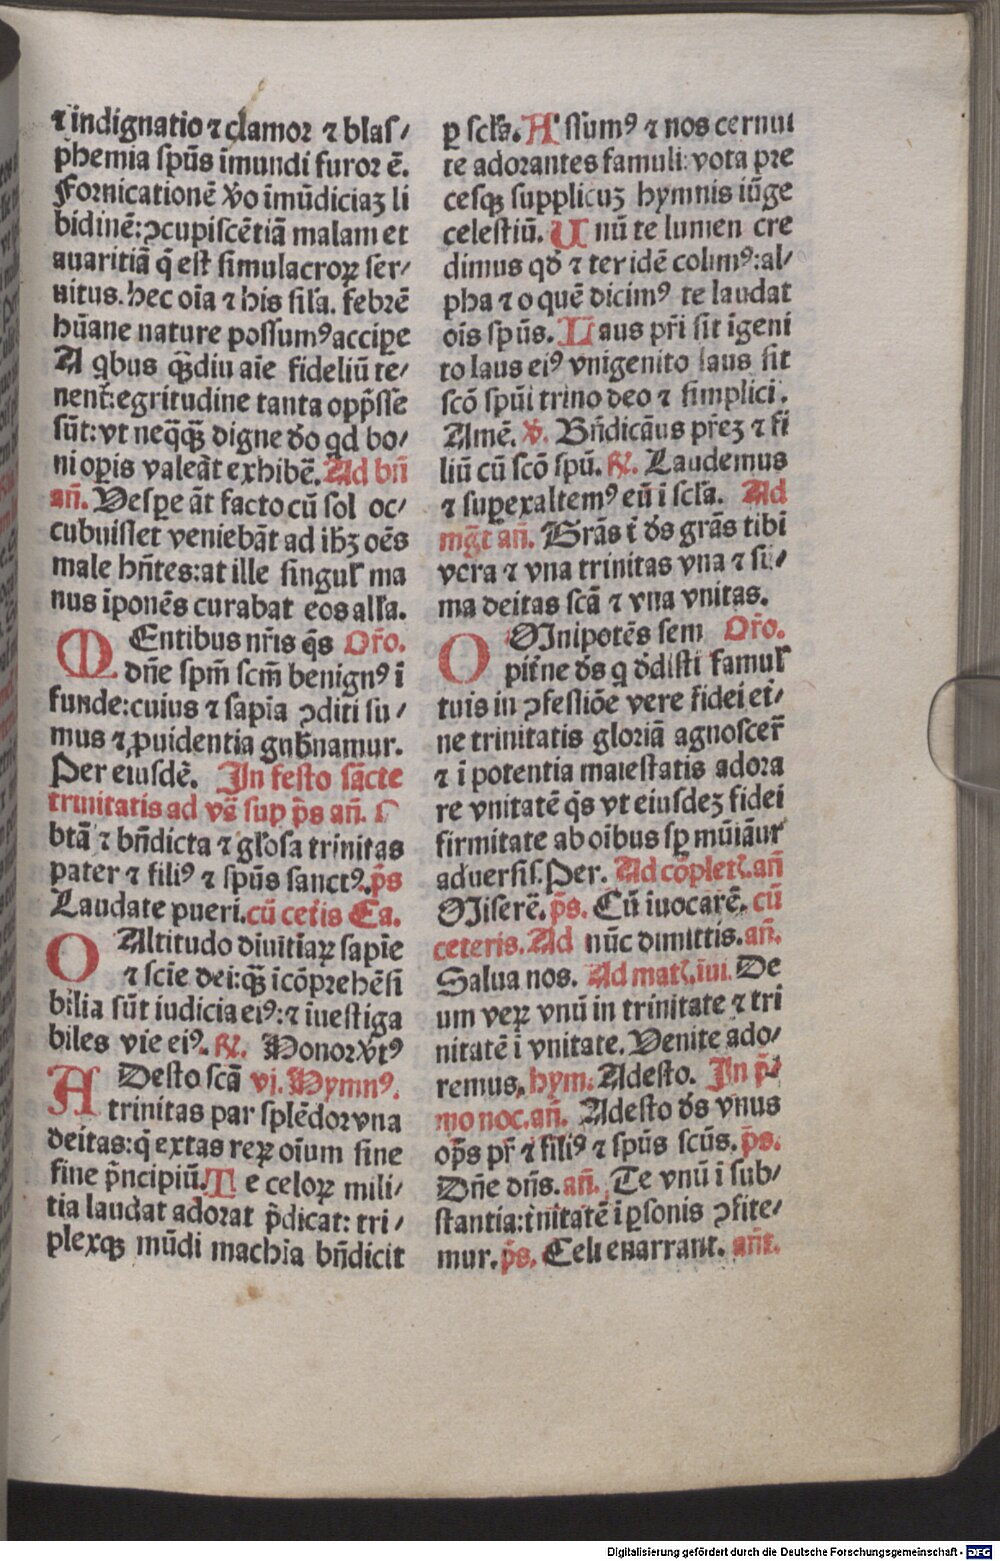 ⁊ indignatio ⁊ clamoꝛ ⁊ blaſ⸗
phemia ſpūs īmundi furoꝛ ē.
Foꝛnicationē ꝟo īmūdiciaꝫ li
bidinē: ꝯcupiſcētiā malam et
auaritiā q̄ eſt ſimulacroꝝ ſer⸗
uitus. hec oīa ⁊ his ſil'a. febrē
hūane nature poſſumꝰ accipe
A qbus qꝫdiu aīe fideliū te⸗
nent̄: egritudine tanta opp̄ſſe
ſūt: vt neq̄qꝫ digne ꝺo qd bo⸗
ni opis valeāt exhibē. Ad bn̄
an̄. Veſpe āt facto cū ſol oc⸗
cubuiſſet veniebāt ad ihꝫ oēs
male hn̄tes: at ille ſingul' ma
nus īponēs curabat eos all'a.
MEntibus nr̄is q̄s Or̄o.
dn̄e ſpm̄ ſcm̄ benignꝰ ī
funde: cuius ⁊ ſapīa ꝯditi ſu⸗
mus ⁊ ꝓuidentia gub̄namur.
Per eiuſdē. In feſto ſācte
trinitatis ad vē ſup p̄s an̄. S
btā ⁊ bn̄dicta ⁊ gl'oſa trinitas
pater ⁊ filiꝰ ⁊ ſpūs ſanctꝰ. p̄s
Laudate pueri. cū ceťis Ca.
O Altitudo diuitiaꝝ ſapīe
⁊ ſcīe dei: qꝫ īcōprehēſi
bilia ſūt iudicia eiꝰ: ⁊ īueſtiga
biles vie eiꝰ. ℟. Honoꝛ ꝟtꝰ
ADeſto ſcā vj. Hymnꝰ.
trinitas par ſplēdoꝛ vna
deitas: q̄ extas reꝝ oīum ſine
fine p̄ncipiū. Te celoꝝ mili⸗
tia laudat adoꝛat p̄dicat: tri⸗
plexqꝫ mūdi machīa bn̄dicit
ꝑ ſcl'a. Aſſumꝰ ⁊ nos cernui
te adoꝛantes famuli: vota pre
ceſqꝫ ſupplicuꝫ hymnis iūge
celeſtiū. Unū te lumen cre
dimus qd̄ ⁊ ter idē colimꝰ: al⸗
pha ⁊ o quē dicimꝰ te laudat
oīs ſpūs. Laus pr̄i ſit īgeni
to laus eiꝰ vnigenito laus ſit
ſcō ſpūi trino deo ⁊ ſimplici.
Amē. ℣. Bn̄dicāus pr̄eꝫ ⁊ fi
liū cū ſcō ſpū. ℟. Laudemus
⁊ ſuꝑexaltemꝰ eū ī ſcl'a. Ad
mg̃t an̄. Grās t̄ ds̄ grās tibi
vera ⁊ vna trinitas vna ⁊ ſū⸗
ma deitas ſcā ⁊ vna vnitas.
OMnipotēs ſem Or̄o.
pit̄ne ds̄ q dediſti famul'
tuis in ꝯfeſſiōe vere fidei et⸗
ne trinitatis gloꝛiā agnoſcer̄
⁊ ī potentia maieſtatis adoꝛa
re vnitatē q̄s vt eiuſdeꝫ fidei
firmitate ab oībus ſꝑ mūiāur
aduerſiſ. Per. Ad cōplet̄. an̄
Miſerē. p̄s. Cū īuocarē. cū
ceteris. Ad nūc dimittis. an̄.
Salua nos. Ad mat̄. īui. De
um veꝝ vnū in trinitate ⁊ tri
nitatē ī vnitate. Venite ado⸗
remus. hym. Adeſto. In p̄i
mo noc. an̄. Adeſto ds̄ vnus
op̄s pr̄ ⁊ filiꝰ ⁊ ſpūs ſcūs. p̄s.
Dn̄e dn̄s. an̄. Te vnū ī ſub⸗
ſtantia: t̄nitatē ī ꝑſonis ꝯfite⸗
mur. p̄s. Celi enarrant. ant̄.
Digitalisierung gefördert durch die Deutsche Forschungsgemeinschaft - DFG